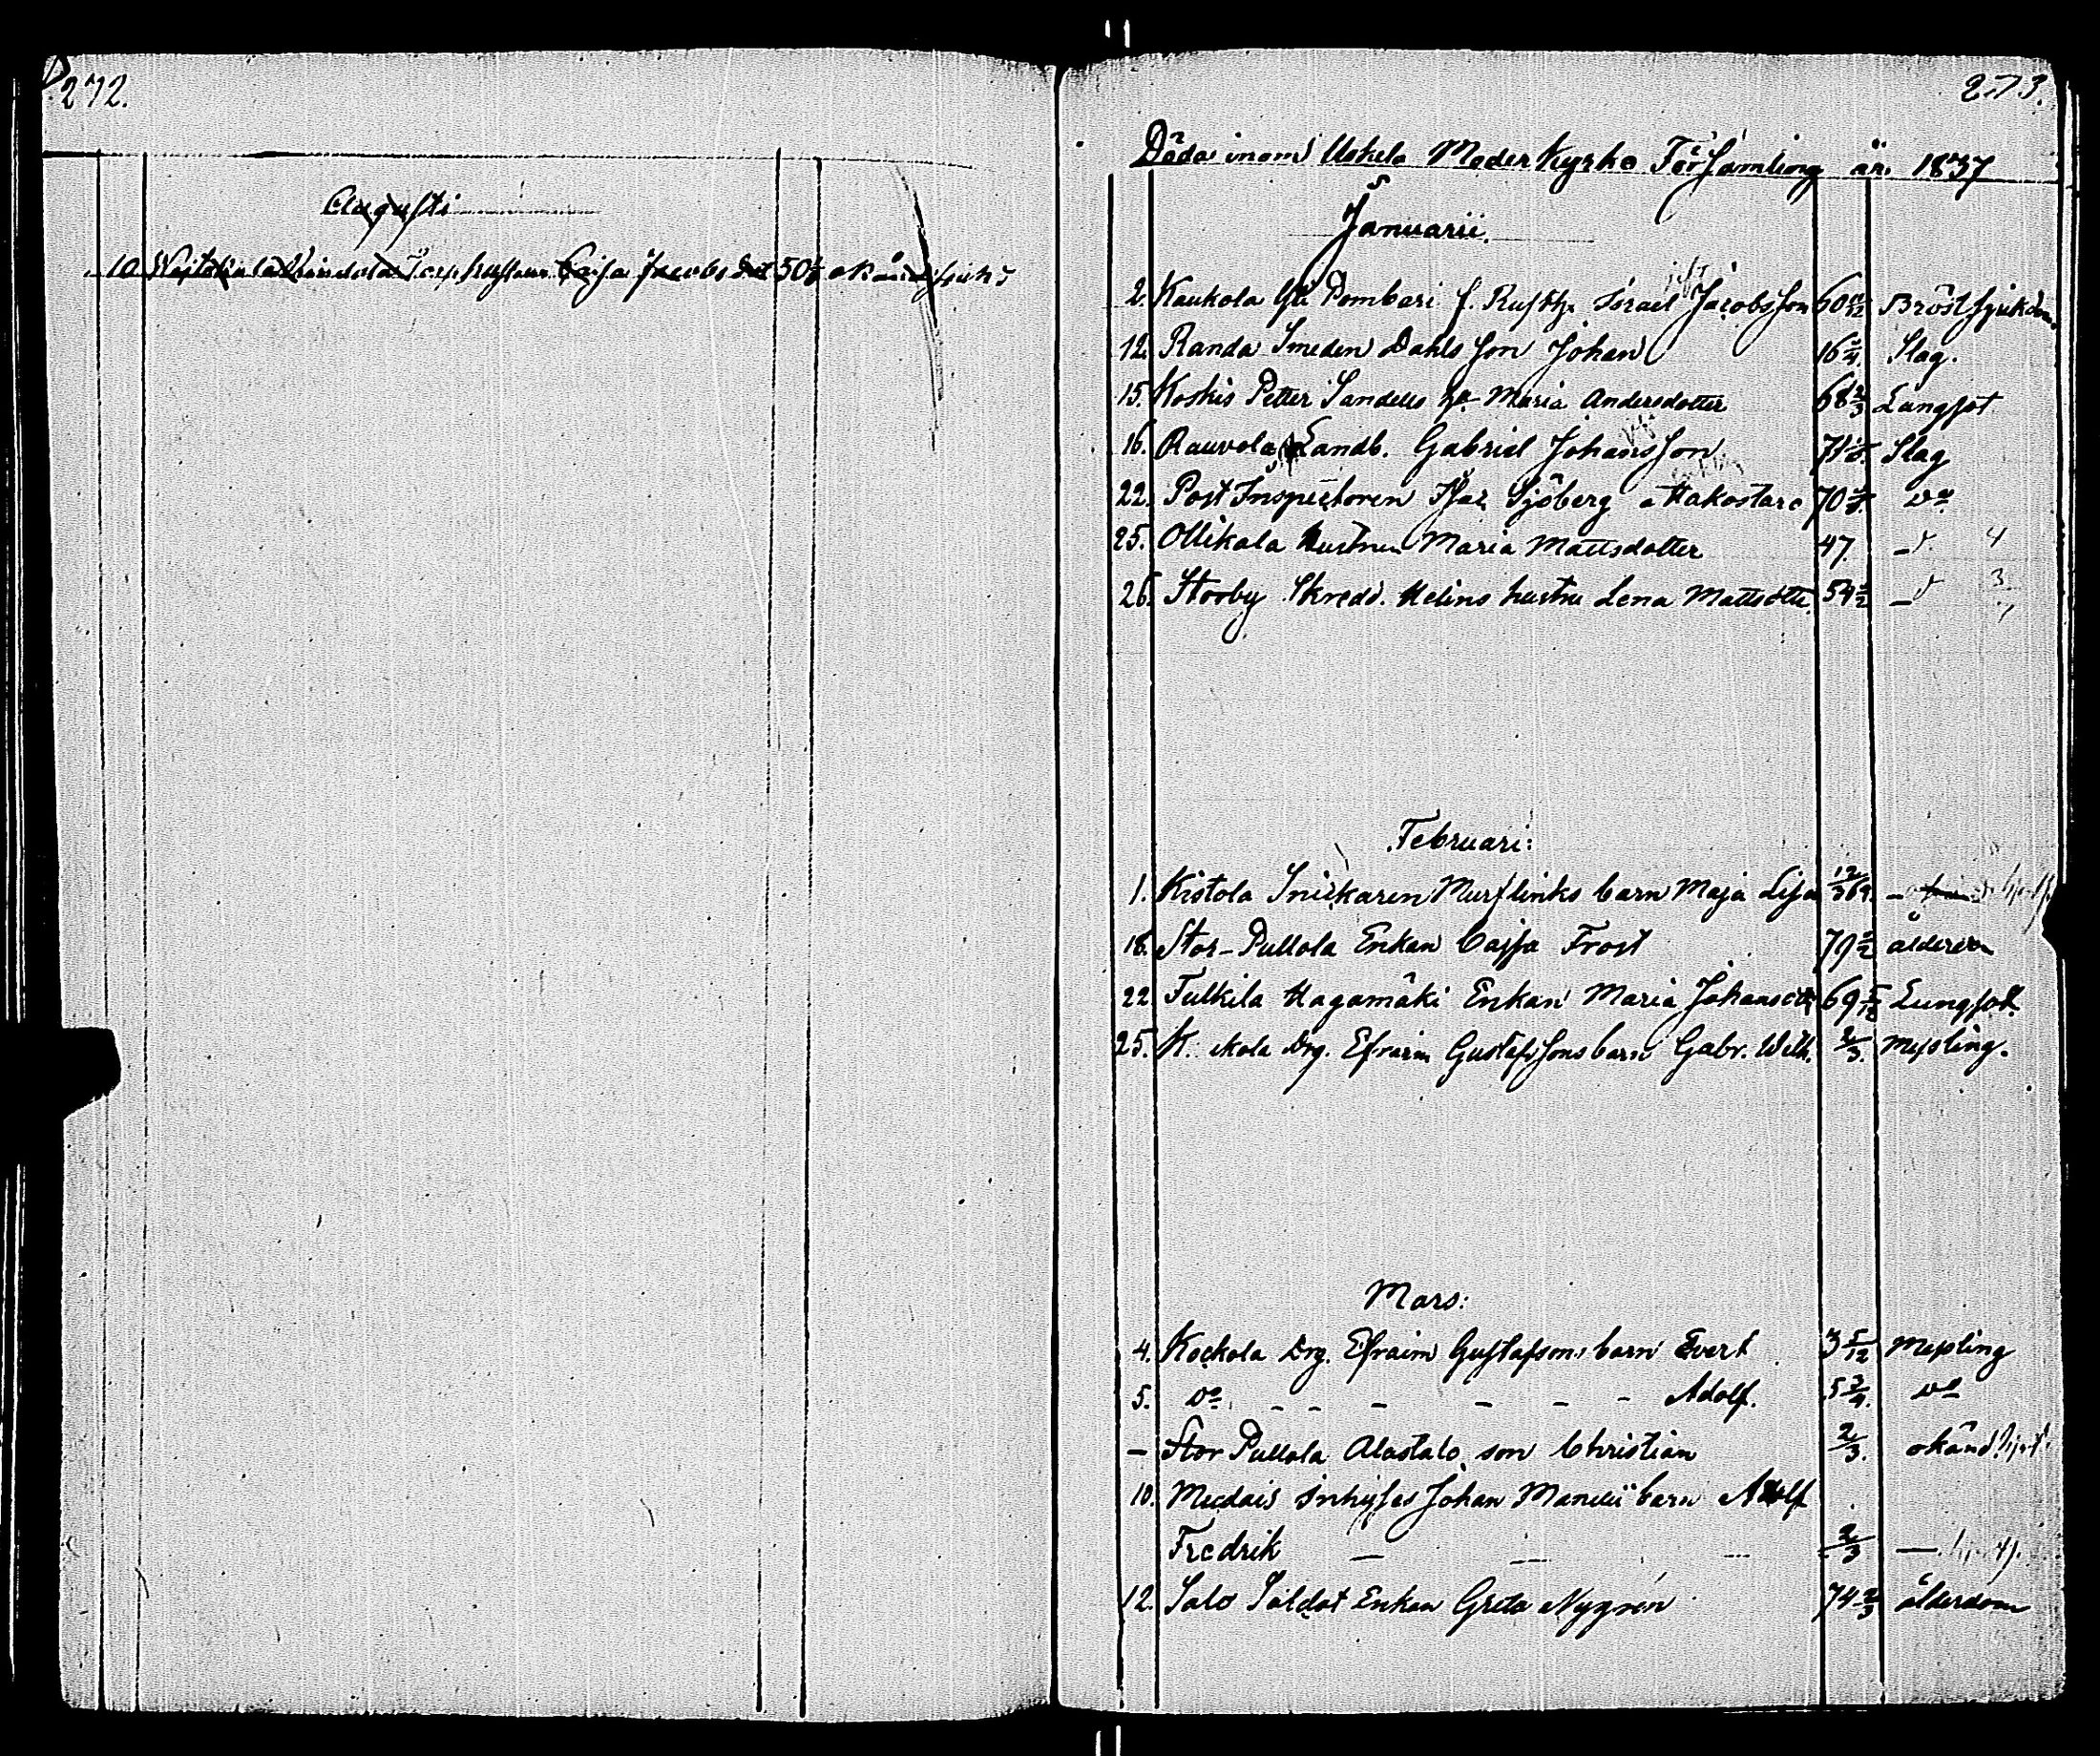 272.
Augusti
10 Torp hustrun Caisa Jacobs dot 50 1/2 okänd sjukd
273.
Döda inom Uskela Moder Kyrko Församling år 1837
Januarii.
2. Kaukola Pombari f. Rusth. Israel Jacobsson 60 Bröstsjukdom.
12. Randa Smeden Dahls son Johan 16 Slag.
15. Koskis Petter Sandells h. Maria Andersdotter 68 2/3 Lungsot
16. Rauvola Landb. Gabriel Johansson 71 Slag
22. Post Inspectoren Isac Sjöberg a Hakostaro 70 do
25. Ollikala hustrun Maria Mattsdotter 47. - 4
26. Storby Skredd. Helins hustru Lena Mattsdttr. 54 1/2 - 3
7
Februari:
1. Kistola Snickaren Murslinks barn Maja Lisa 12/365. -
18. Stor-Pullola Enkan Cajsa Frost 79 1/2 ålderdom
22. Tulkila Hagamäki Enkan Maria Johansdttr 69 5/12 Lungsot.
25. K. kola Drg. Efraim Gustafssons barn Gabr. Wilh. 2/3. Messling.
Mars:
4. Kockola Drg. Efraim Gustafsons barn Evert 3 5/12 Messling
5. do - - - - - - Adolf. 5 3/4. do
- Stor Pullola Alastalo son Christian 2/3. okänd sjd.
10. Inhyses Johan barn Adolf
Fredrik — — — 2/3 —
12. Salo Soldat Enkan Greta Nygrén 74 2/3 ålderdom